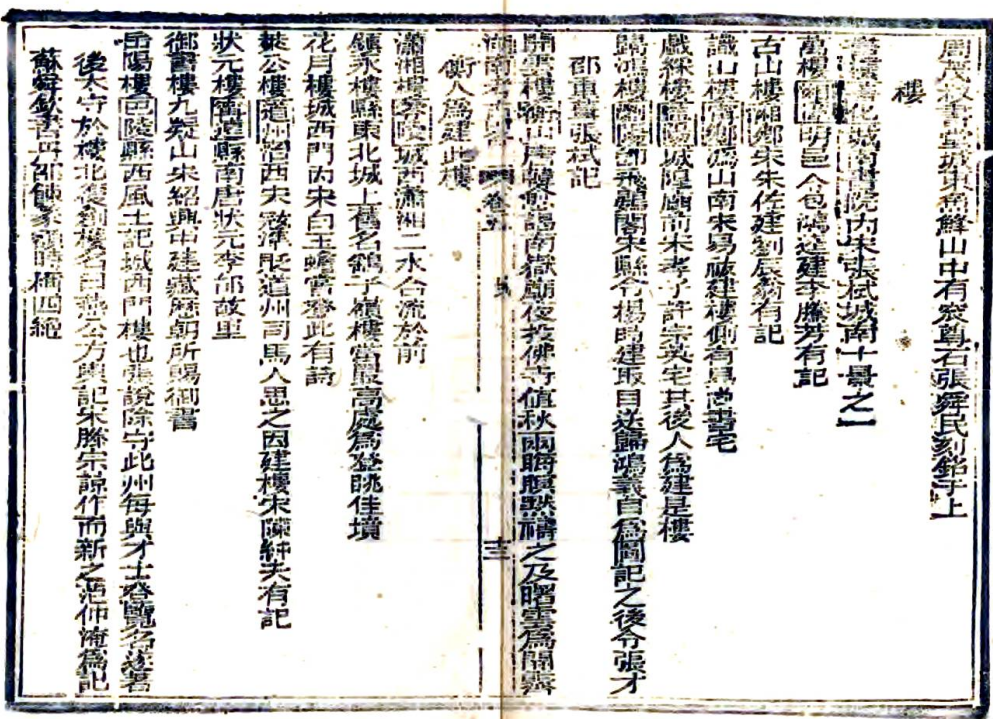 周茂叔書堂城東魚鮮山中有窊尊石張舜民刻銘于上
樓
善化城南書院內宋張栻城南十景之一
萬樓湘潭明邑令包鴻逵建李騰芳有記
古山樓湘鄉宋朱佐建劉辰翁有記
識山樓甯鄉潙山南宋易祓建樓側有易尚書宅
戲綵樓益陽城隍廟前宋孝子許宗英宅其後人爲建是樓
歸鴻樓瀏陽卽飛鷃閣宋縣令楊時建取目送歸鴻義自爲圖記之後令張才
邵重葺張栻記
開雲樓衡山唐韓愈謁南嶽廟夜投佛寺值秋雨晦暝默禱之及曙雲爲開霽
湖南 卷五 十三
衡人爲建此樓
瀟湘樓零陵城西瀟湘二水合流於前
鎮永樓縣東北城上舊名鷂子嶺樓當最高處爲登眺佳境
花月樓城西門內宋白玉蟾嘗登此有詩
萊公樓道州治西宋寇準貶道州司馬人思之因建樓宋陳純夫有記
狀元樓甯遠縣南唐狀元李郃故里
御書樓九疑山宋紹興中建藏歷朝所賜御書
岳陽樓巴陵縣西風土記城西門樓也張說除守此州每與才士登覽名遂著
後太守於樓北復創樓名曰燕公方輿記宋滕宗諒作而新之范仲淹爲記
蘇舜欽書丹邵餗篆額時稱四絕